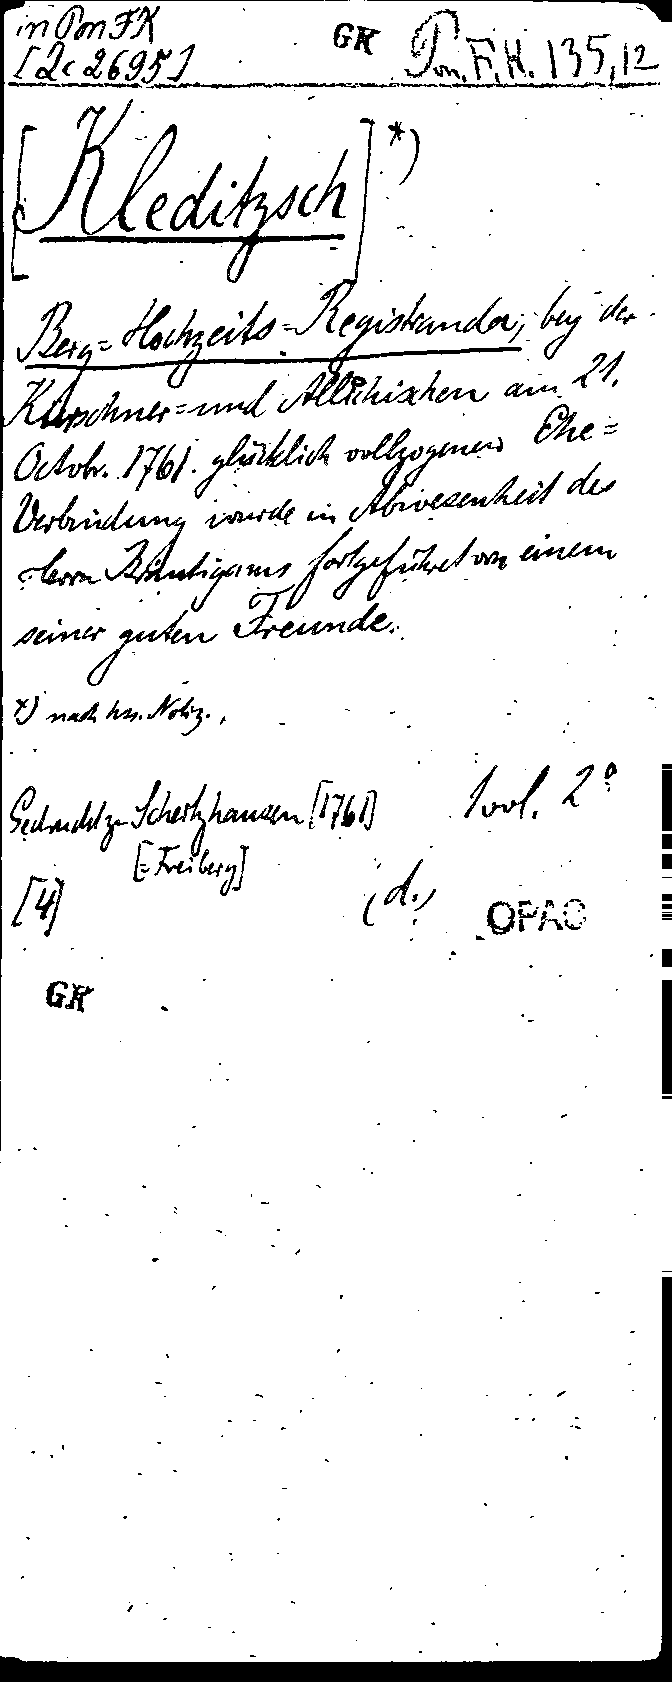 in Pon FK GK Pon. F. K. 135,12
[2c 2695]
[Kleditzsch] *)
Berg=Hochzeits=Registranda, bey der
Kürschner=und Allichischen am 21.
Octobr. 1761. glücklich vollzogenen Ehe=
Verbindung wurde in Abwesenheit des
Herrn Bräutigams fortgeführet von einem
seiner guten Freunde.
*) nach hs. Notiz.
Gedruckt zu Schertzhausen [1761] 1 vol. 2°
[=Freiberg]
[4] (d.) OPAC
GK